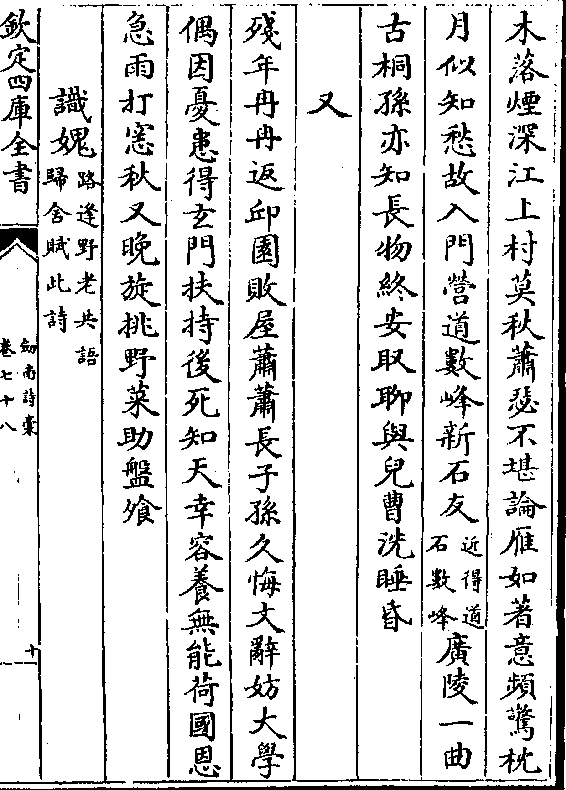 木落煙深江上村莫秋蕭瑟不堪論雁如著意頻驚枕
月似知愁故入門營道數峰新石友近得道石數峰廣陵一曲
古桐孫亦知長物終安取聊與兒曹洗睡昏
又
殘年冉冉返邱園敗屋蕭蕭長子孫久悔文辭妨大學
偶因憂患得玄門扶持後死知天幸容養無能荷國恩
急雨打窻秋又晚旋挑野菜助盤飱
識媿路逢野老共語歸舍賦此詩
欽定四庫全書
劔南詩藁
卷七十八
十